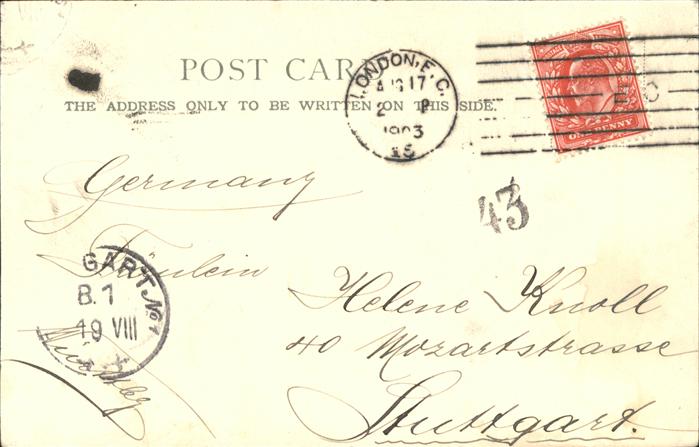 POST CARD
THE ADDRESS ONLY TO BE WRITTEN ON THIS SIDE.
LONDON, E.C.
AUG 17
2 P
1903
15
E C
ONE PENNY
Germany
43
Fräulein
Helene Knoll
40 Mozartstrasse
Stuttgart.
GART No 1
B.1
19 VIII